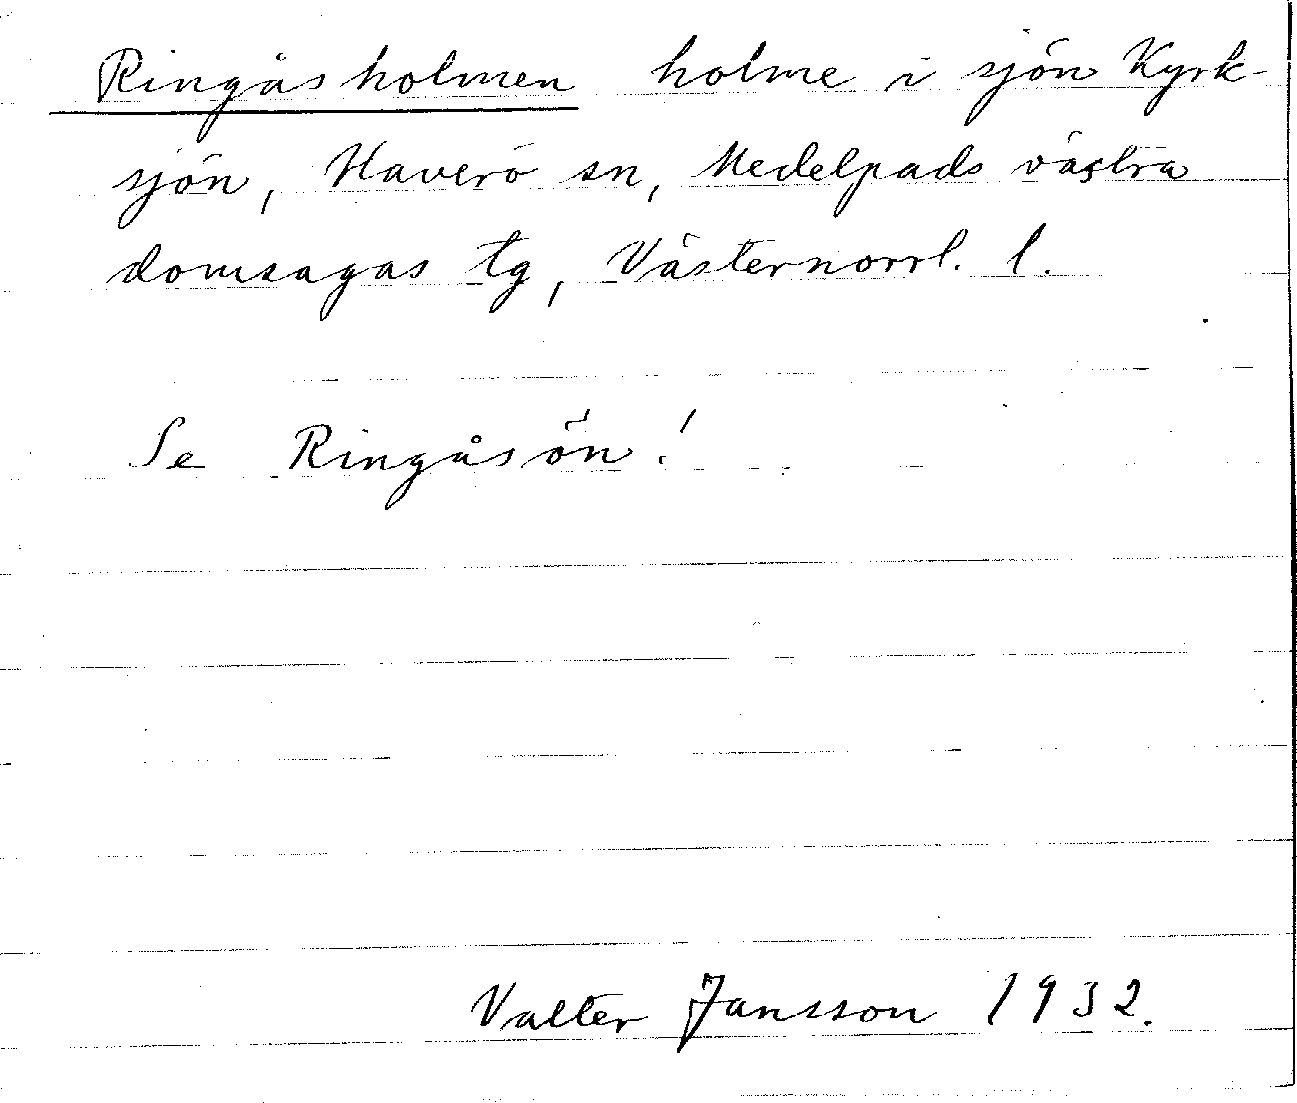 Ringåsholmen holme i sjön Kyrk-
sjön, Haverö sn, Medelpads västra
domsagas tg, Västernorrl. l.
Se Ringåsön!
Valter Jansson 1932.